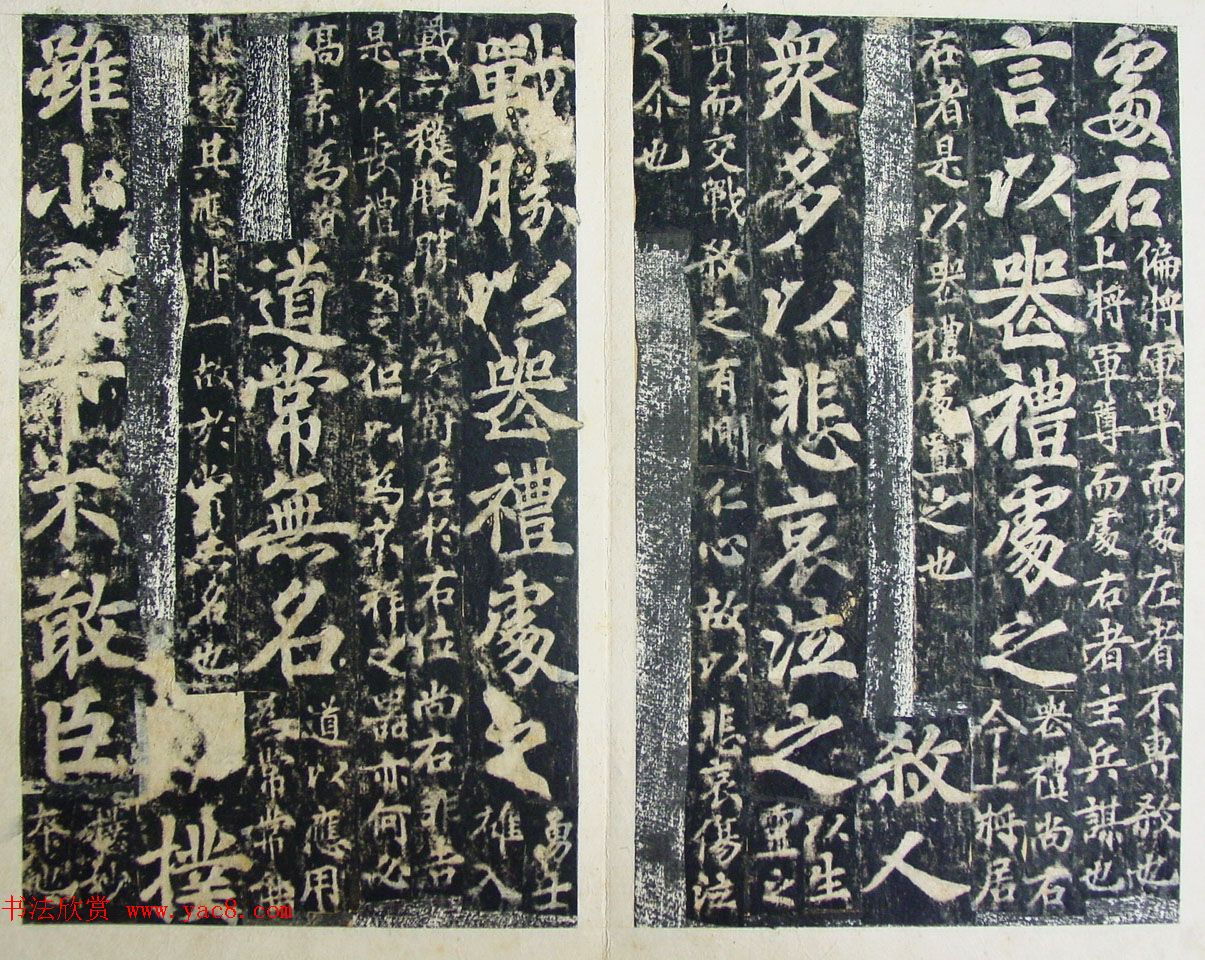 處右
偏將軍卑而處左者不專殺也
上將軍尊而處右者主兵謀也
言以喪禮處之
喪禮尚右
今上將居
右者是以喪禮處置之也
殺人
衆多以悲哀泣之
以生
靈之
貴而交戰殺之有惻仁心故以悲哀傷泣
之尒也
戰勝以喪禮處之
勇士
雄入
戰而獲勝勝則居於右位尚右非吉
是以喪禮處之但以為不祥之器亦何必
縞素為資
道常無名
道以應用
為常常無
應物其應非一故於常無名也
樸
雖小天下不敢臣
樸妙
本
书法欣赏 www.yac8.com